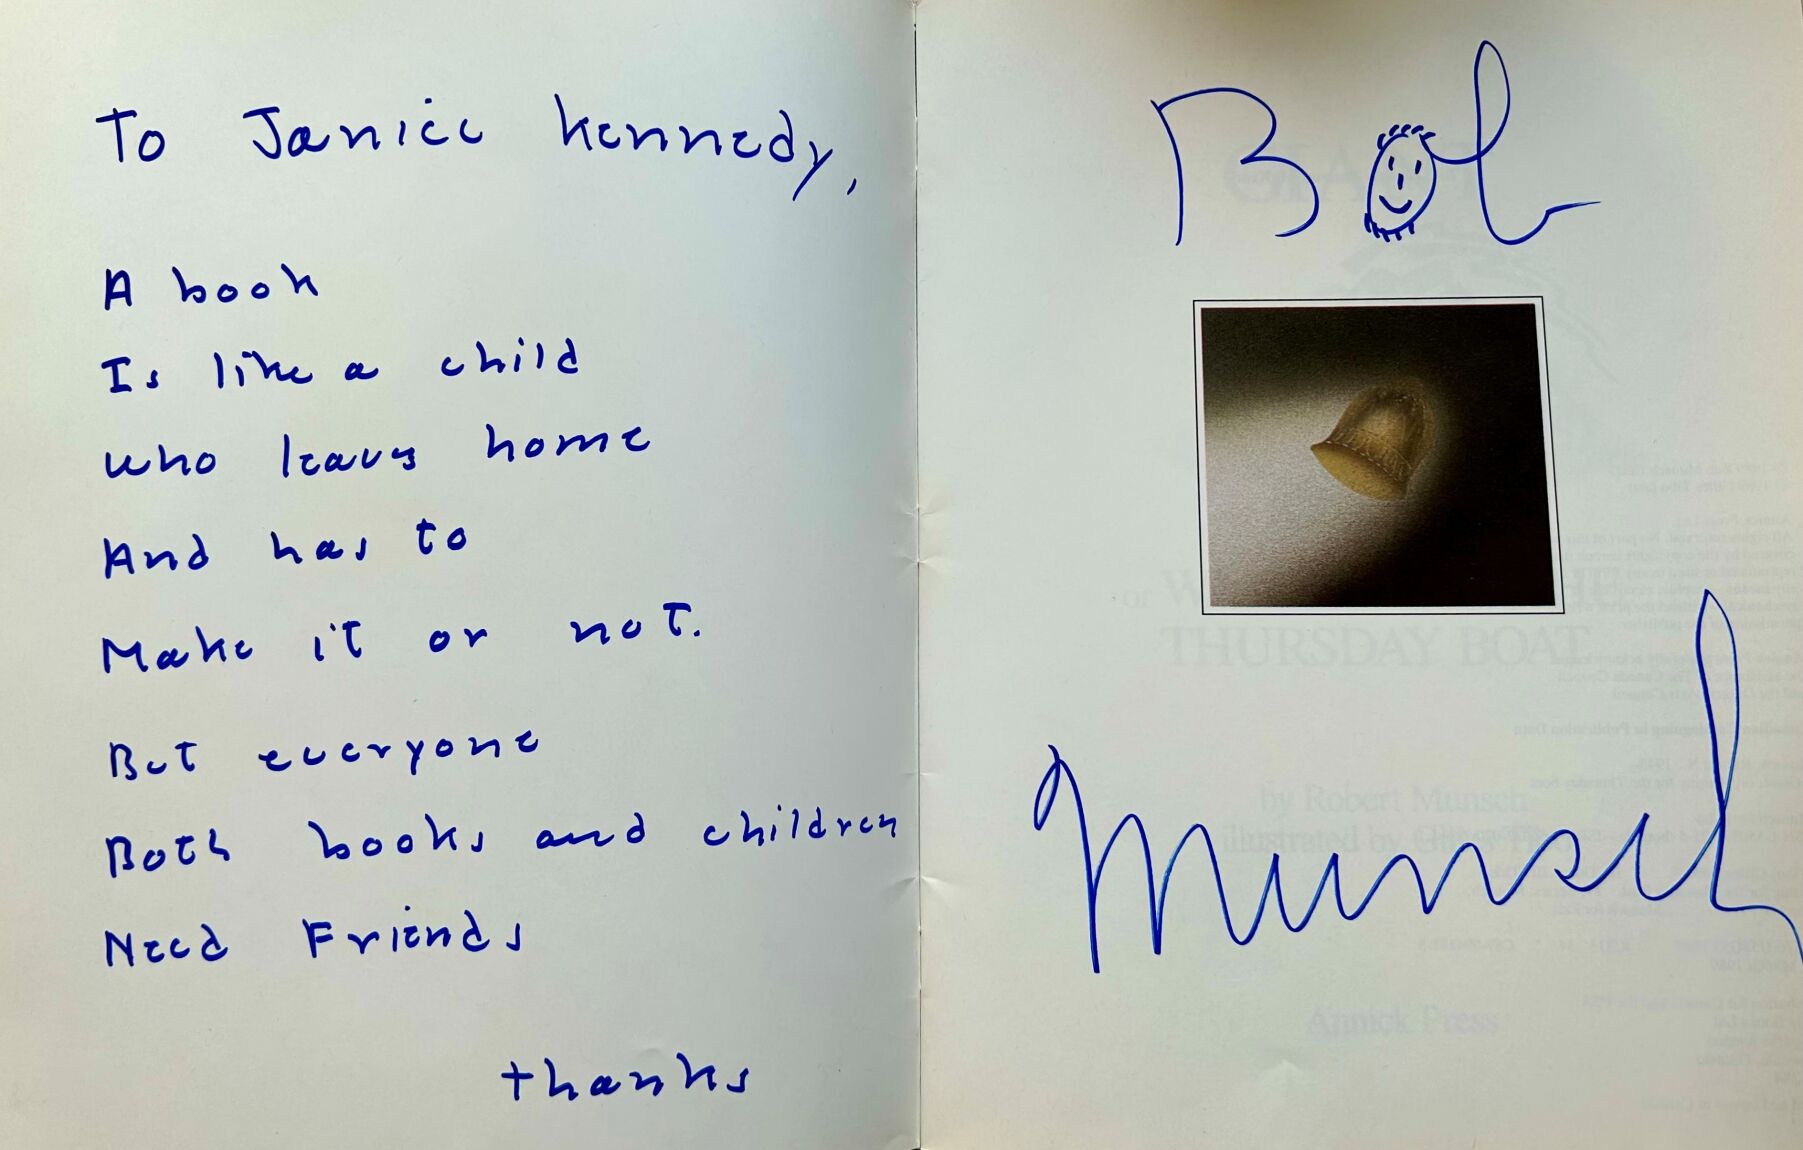 To Janice Kennedy,
A book
Is like a child
who leavs home
And has to
Make it or not.
But everyone
Both books and children
Need Friends
thanks
Bob
GIANT
or W THE
THURSDAY BOAT
Munsch
by Robert Munsch
illustrated by
Annick Press